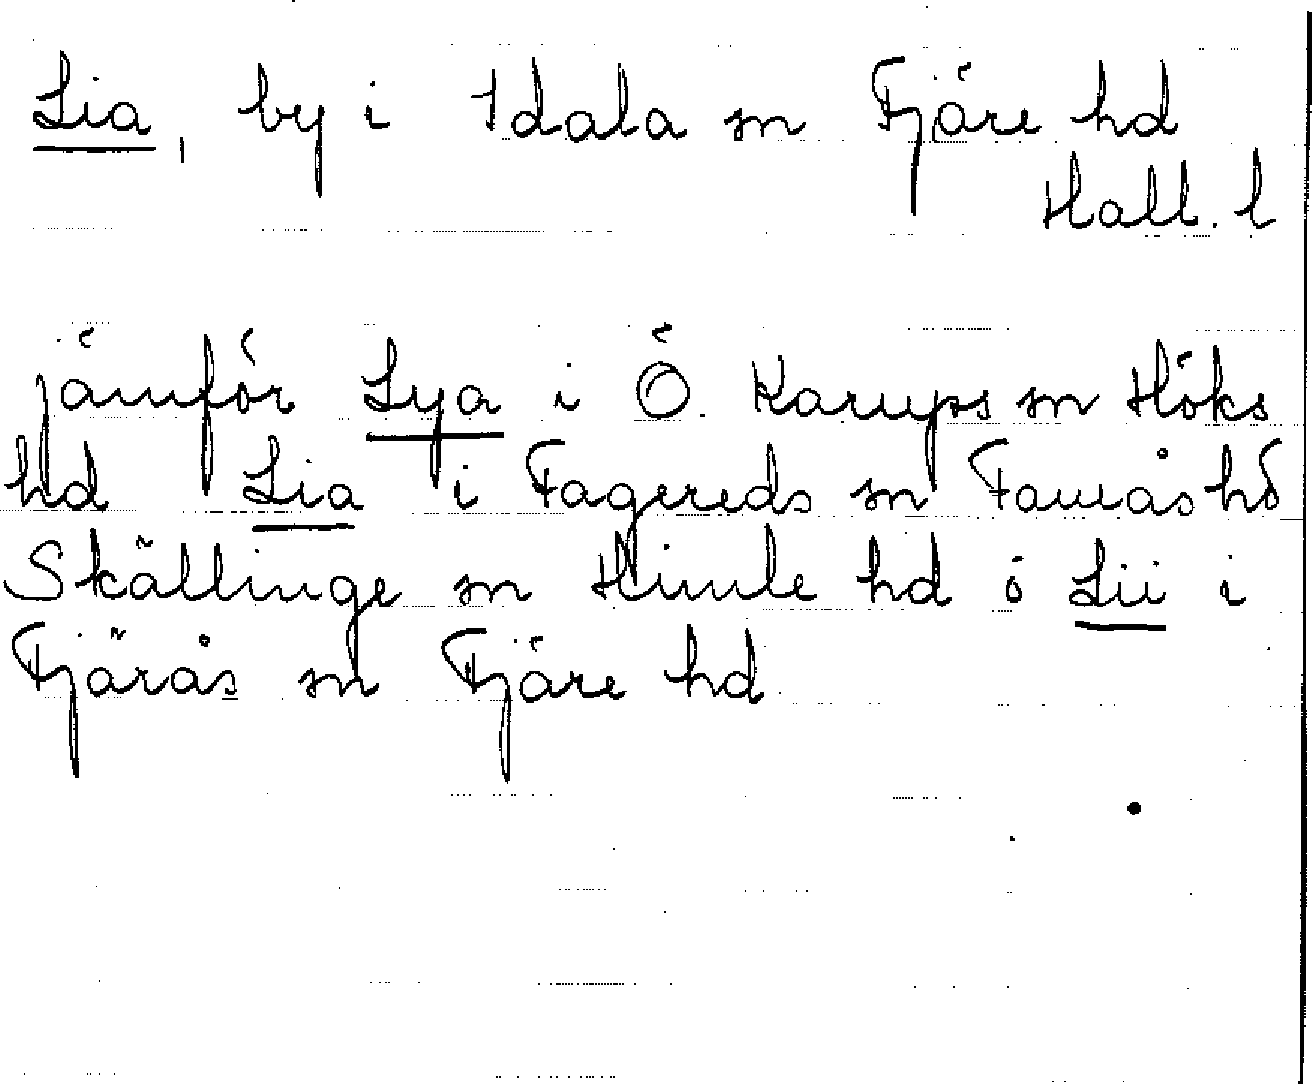 Lia, by i Idala sn Fjäre hd
Hall. l
jämför Lya i Ö. Karups sn Höks
hd Lia i Fagereds sn Faurås hd
Skällinge sn Himle hd ö Lii i
Fjärås sn Fjäre hd